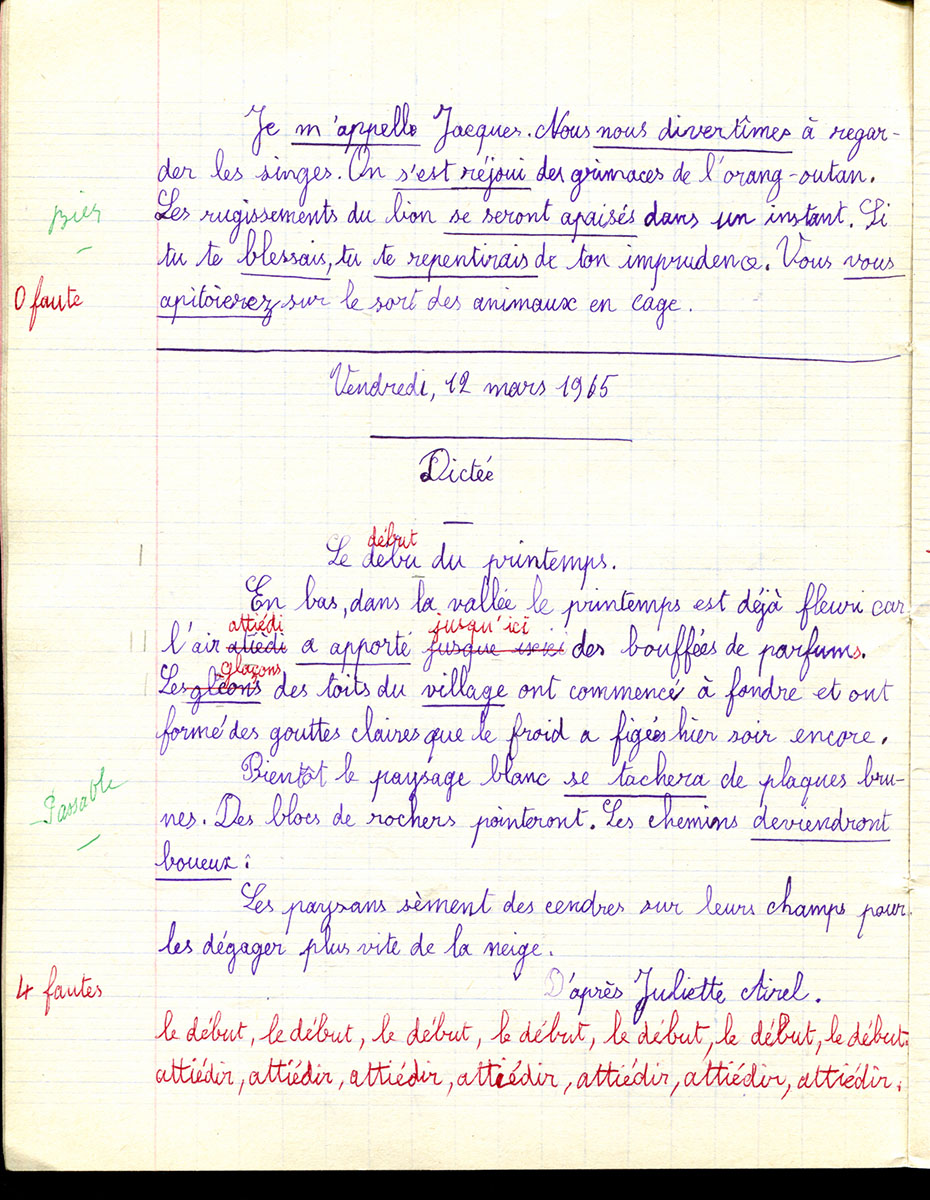 Je m'appelle Jacques. Nous nous divertîmes à regar-
der les singes. On s'est réjoui des grimaces de l'orang-outan.
Bien
Les rugissements du lion se seront apaisés dans un instant. Si
tu te blessais, tu te repentirais de ton imprudence. Vous vous
0 faute
apitoierez sur le sort des animaux en cage.
Vendredi, 12 mars 1965
Dictée
début
Le débu du printemps.
En bas, dans la vallée le printemps est déjà fleuri car
attiédi jusqu'ici
l'air atièdi a apporté jusque ici des bouffées de parfums.
glaçons
Les glçons des toits du village ont commencé à fondre et ont
formé des gouttes claires que le froid a figées hier soir encore.
Bientôt le paysage blanc se tachera de plaques bru-
Passable
nes. Des blocs de rochers pointeront. Les chemins deviendront
boueux :
Les paysans sèment des cendres sur leurs champs pour
les dégager plus vite de la neige.
4 fautes
D'après Juliette Airel.
le début, le début, le début, le début, le début, le début, le début.
attiédir, attiédir, attiédir, attiédir, attiédir, attiédir, attiédir.